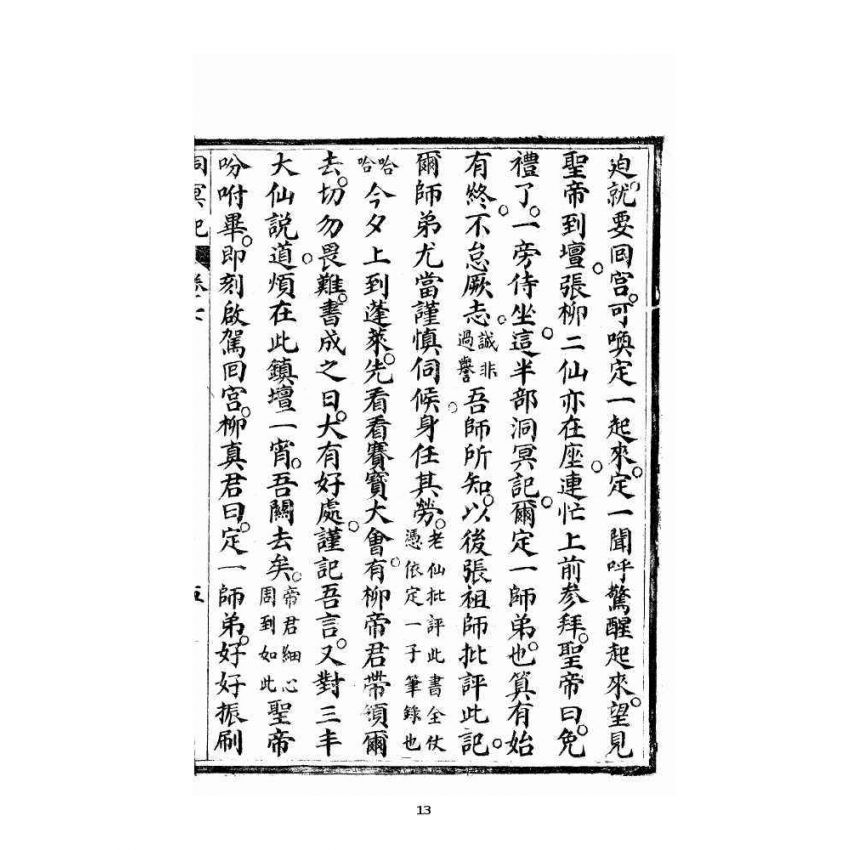 迫就要囘宫。可喚定一起來。定一聞呼驚醒起來。望見
聖帝到壇。張柳二仙亦在座。連忙上前参拜。聖帝曰免
禮了。一旁侍坐。這半部洞冥記。爾定一師弟。也算有始
有終。不怠厥志。誠非過譽吾師所知。以後張祖師批評此記。
爾師弟尤當謹慎伺候。身任其勞。老仙批評此書全仗憑依定一子筆錄也
哈哈今夕上到蓬萊。先看看賽寶大會。有柳帝君帶領爾
去。切勿畏難。書成之日。大有好處。謹記吾言。又對三丰
大仙説道。煩在此鎮壇一宵。吾關去矣。帝君細心周到如此聖帝
吩咐畢。即刻啟駕囘宫。柳真君曰。定一師弟。好好振刷
洞冥記
卷十七
五
13